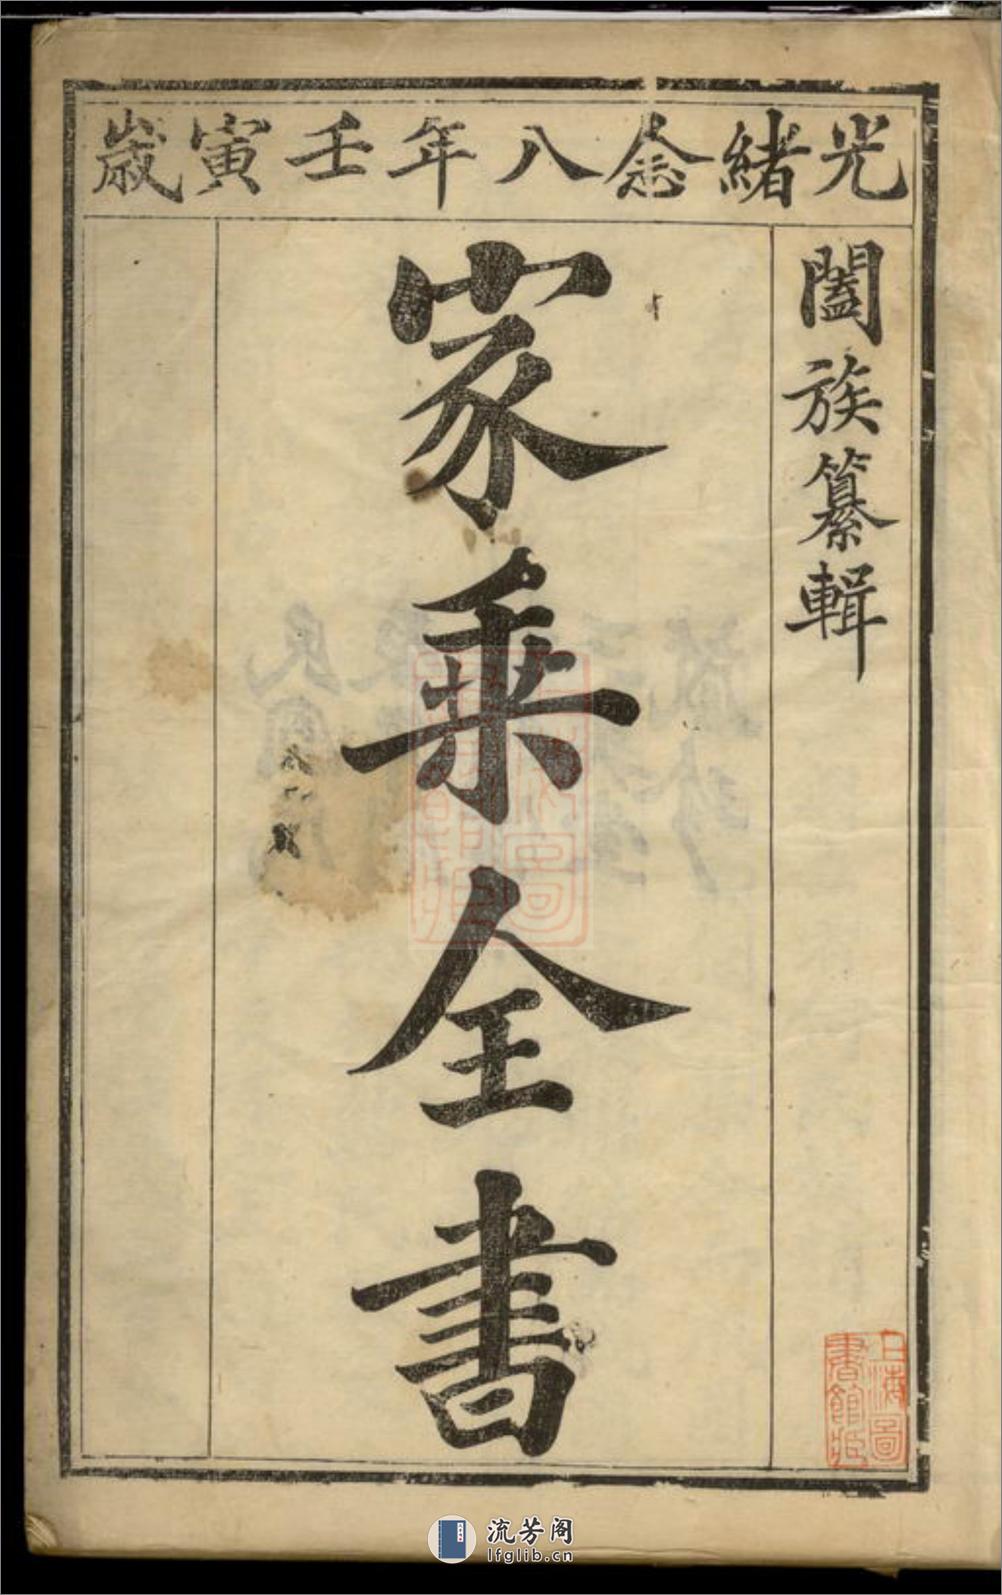 光緒念八年壬寅歲
闔族纂輯
家乘全書
上海圖書館藏
流芳阁
lfglib.cn